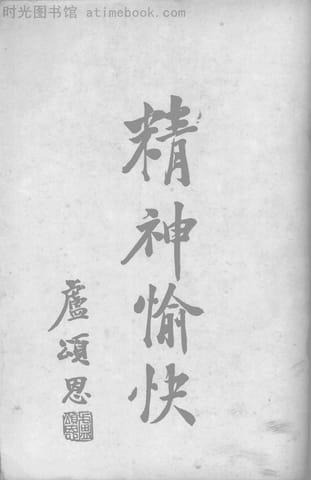 时光图书馆 atimebook.com
精神愉快
盧頌恩